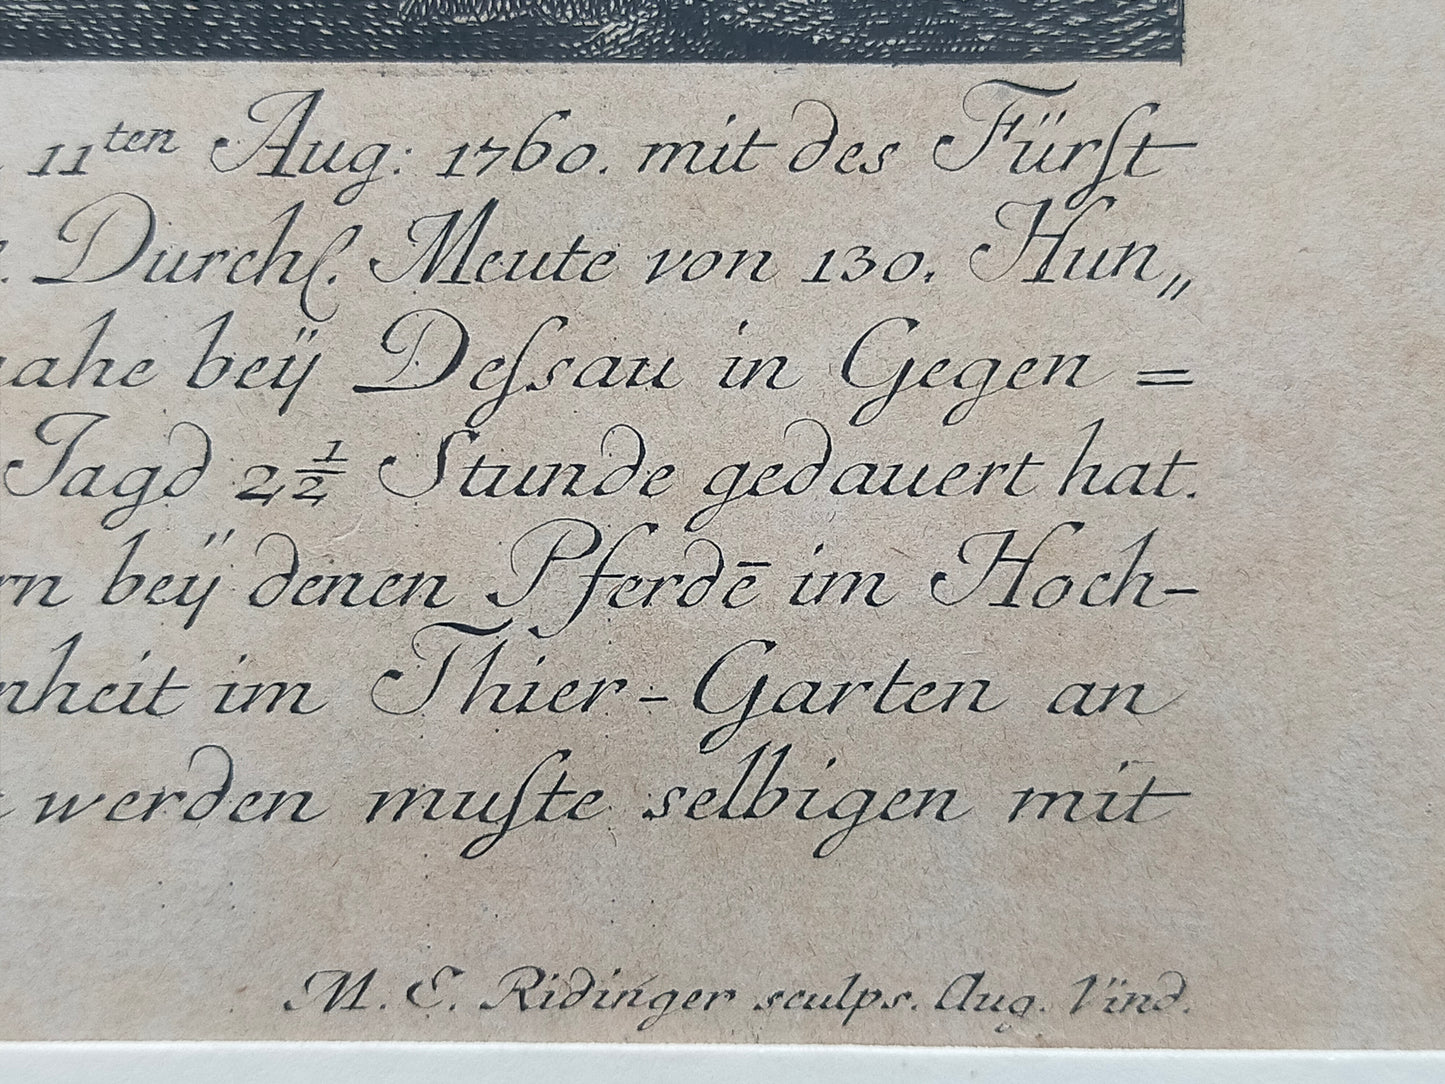 11ten Aug: 1760. mit des Fürſt
Durchſ. Meute von 130. Hun„
nahe beÿ Deſsau in Gegen =
Jagd 2 1/2 Stunde gedauert hat.
beÿ denen Pferdē im Hoch-
im Thier-Garten an
werden muſte selbigen mit
M. E. Ridinger sculps. Aug. Vind.